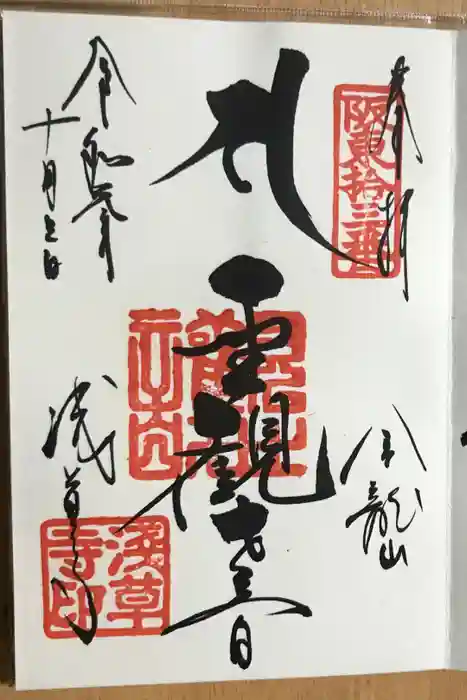 奉拝
阪東拾三番
金龍山
聖観世音
令和元年
十月
浅草寺
浅草寺印